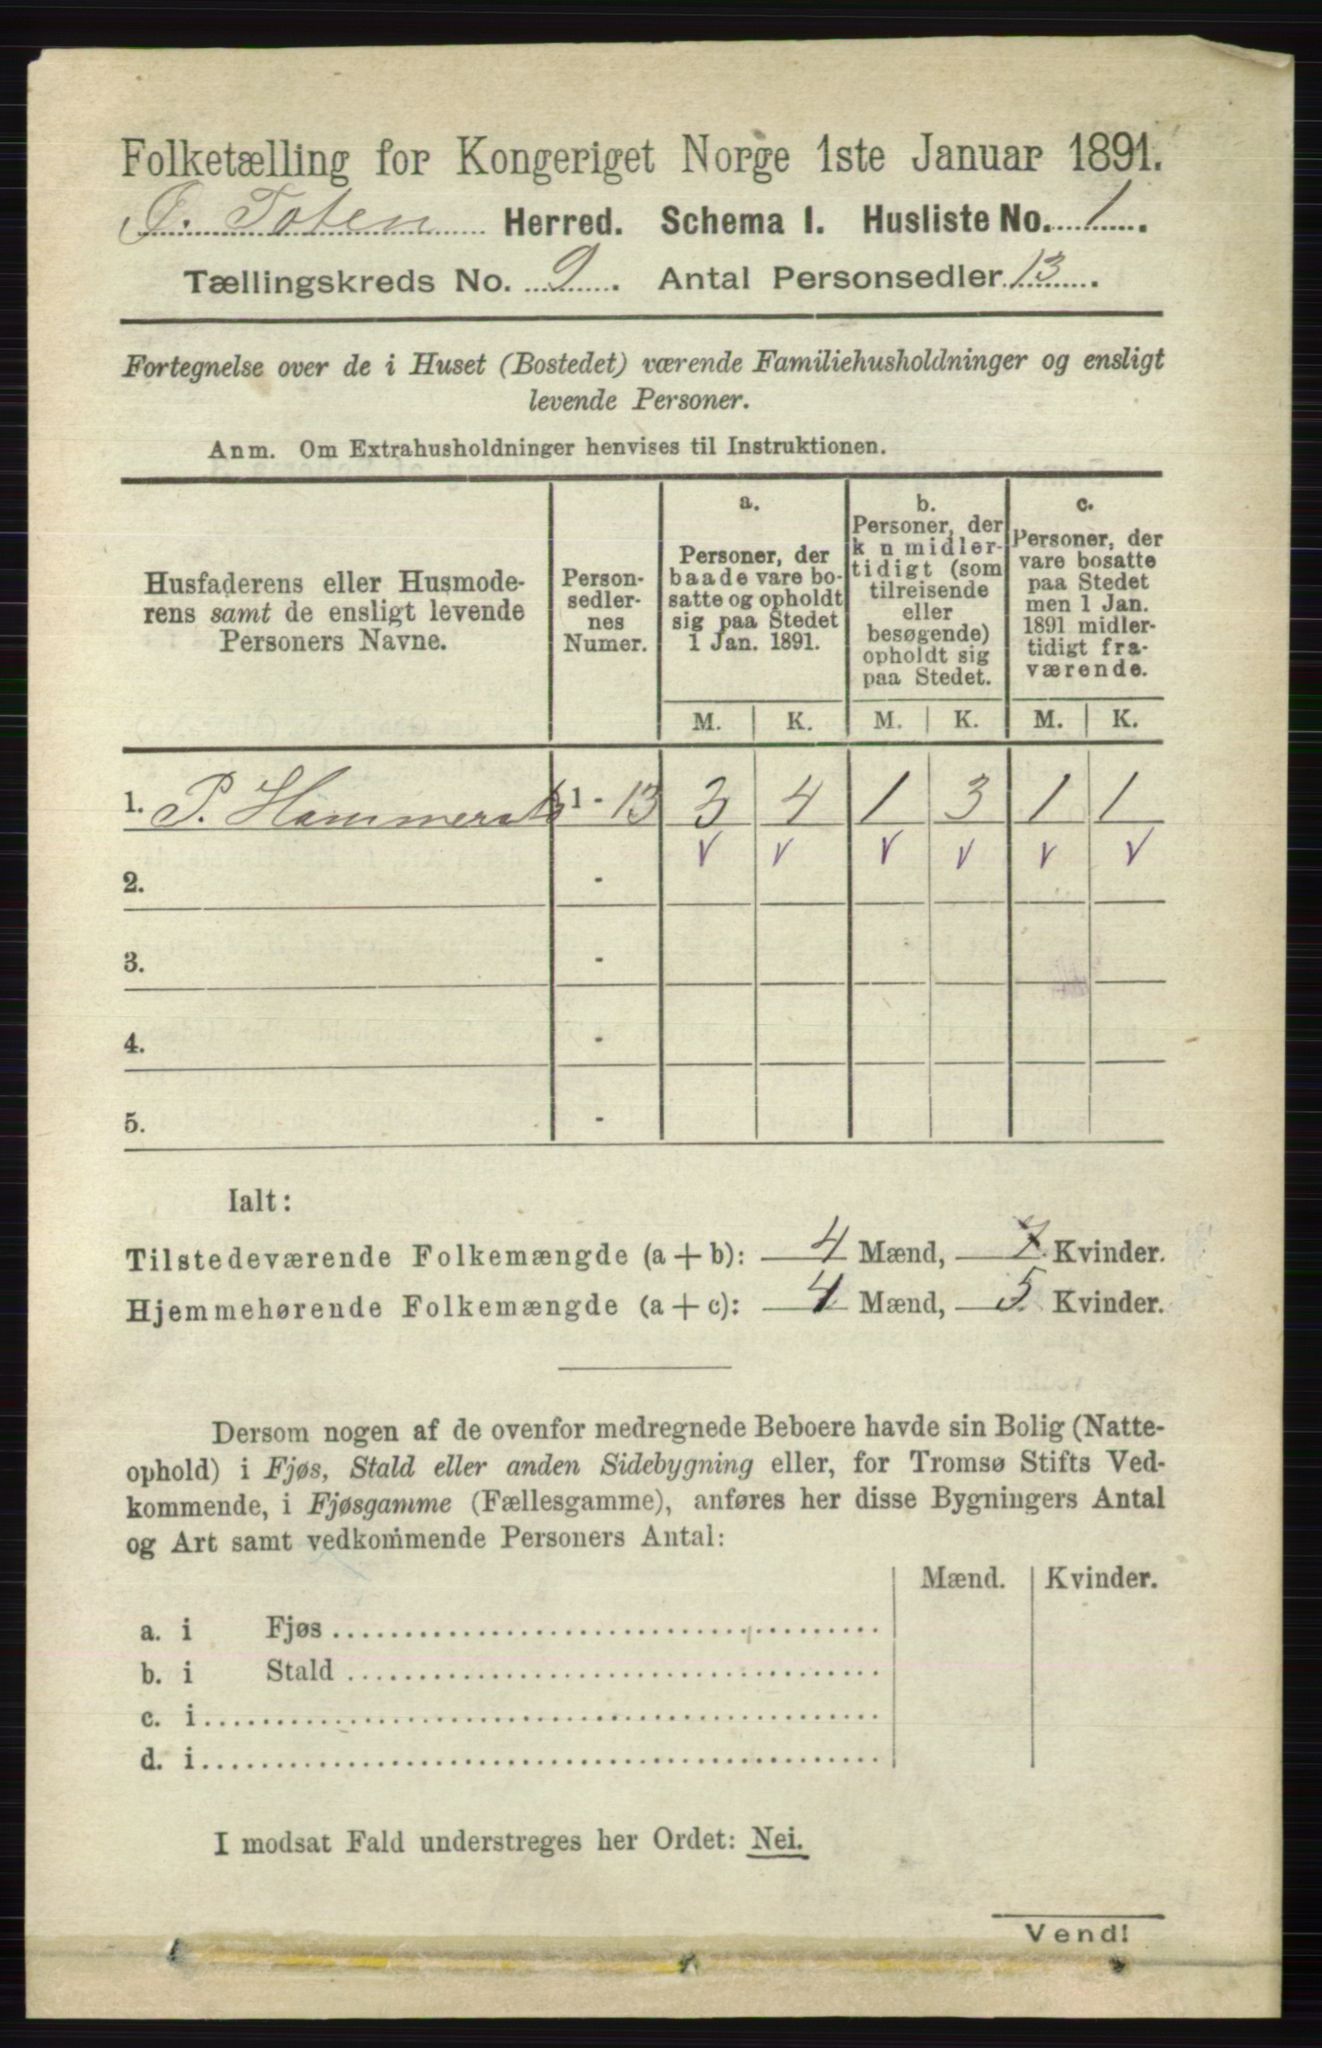 Folketælling for Kongeriget Norge 1ste Januar 1891.
Ø. Toten Herred. Schema I. Husliste No. 1.
Tællingskreds No. 9. Antal Personsedler 13.
Fortegnelse over de i Huset (Bostedet) værende Familiehusholdninger og ensligt
levende Personer.
Anm. Om Extrahusholdninger henvises til Instruktionen.
Husfaderens eller Husmode-
rens samt de ensligt levende
Personers Navne.
Person-
sedler-
nes
Numer.
a.
Personer, der
baade vare bo-
satte og opholdt
sig paa Stedet
1 Jan. 1891.
b.
Personer, der
k n midler-
tidigt (som
tilreisende
eller
besøgende)
opholdt sig
paa Stedet.
c.
Personer, der
vare bosatte
paa Stedet
men 1 Jan.
1891 midler-
tidigt fra-
værende.
M. K. M. K. M. K.
1. P. 1 - 13 3 4 1 3 1 1
v v v v v v
2. -
3. -
4. -
5. -
Ialt:
Tilstedeværende Folkemængde (a + b): 4 Mænd, 7 Kvinder.
Hjemmehørende Folkemængde (a + c): 4 Mænd, 5 Kvinder.
Dersom nogen af de ovenfor medregnede Beboere havde sin Bolig (Natte-
ophold) i Fjøs, Stald eller anden Sidebygning eller, for Tromsø Stifts Ved-
kommende, i Fjøsgamme (Fællesgamme), anføres her disse Bygningers Antal
og Art samt vedkommende Personers Antal:
Mænd. Kvinder.
a. i Fjøs
b. i Stald
c. i
d. i
I modsat Fald understreges her Ordet: Nei.
Vend!